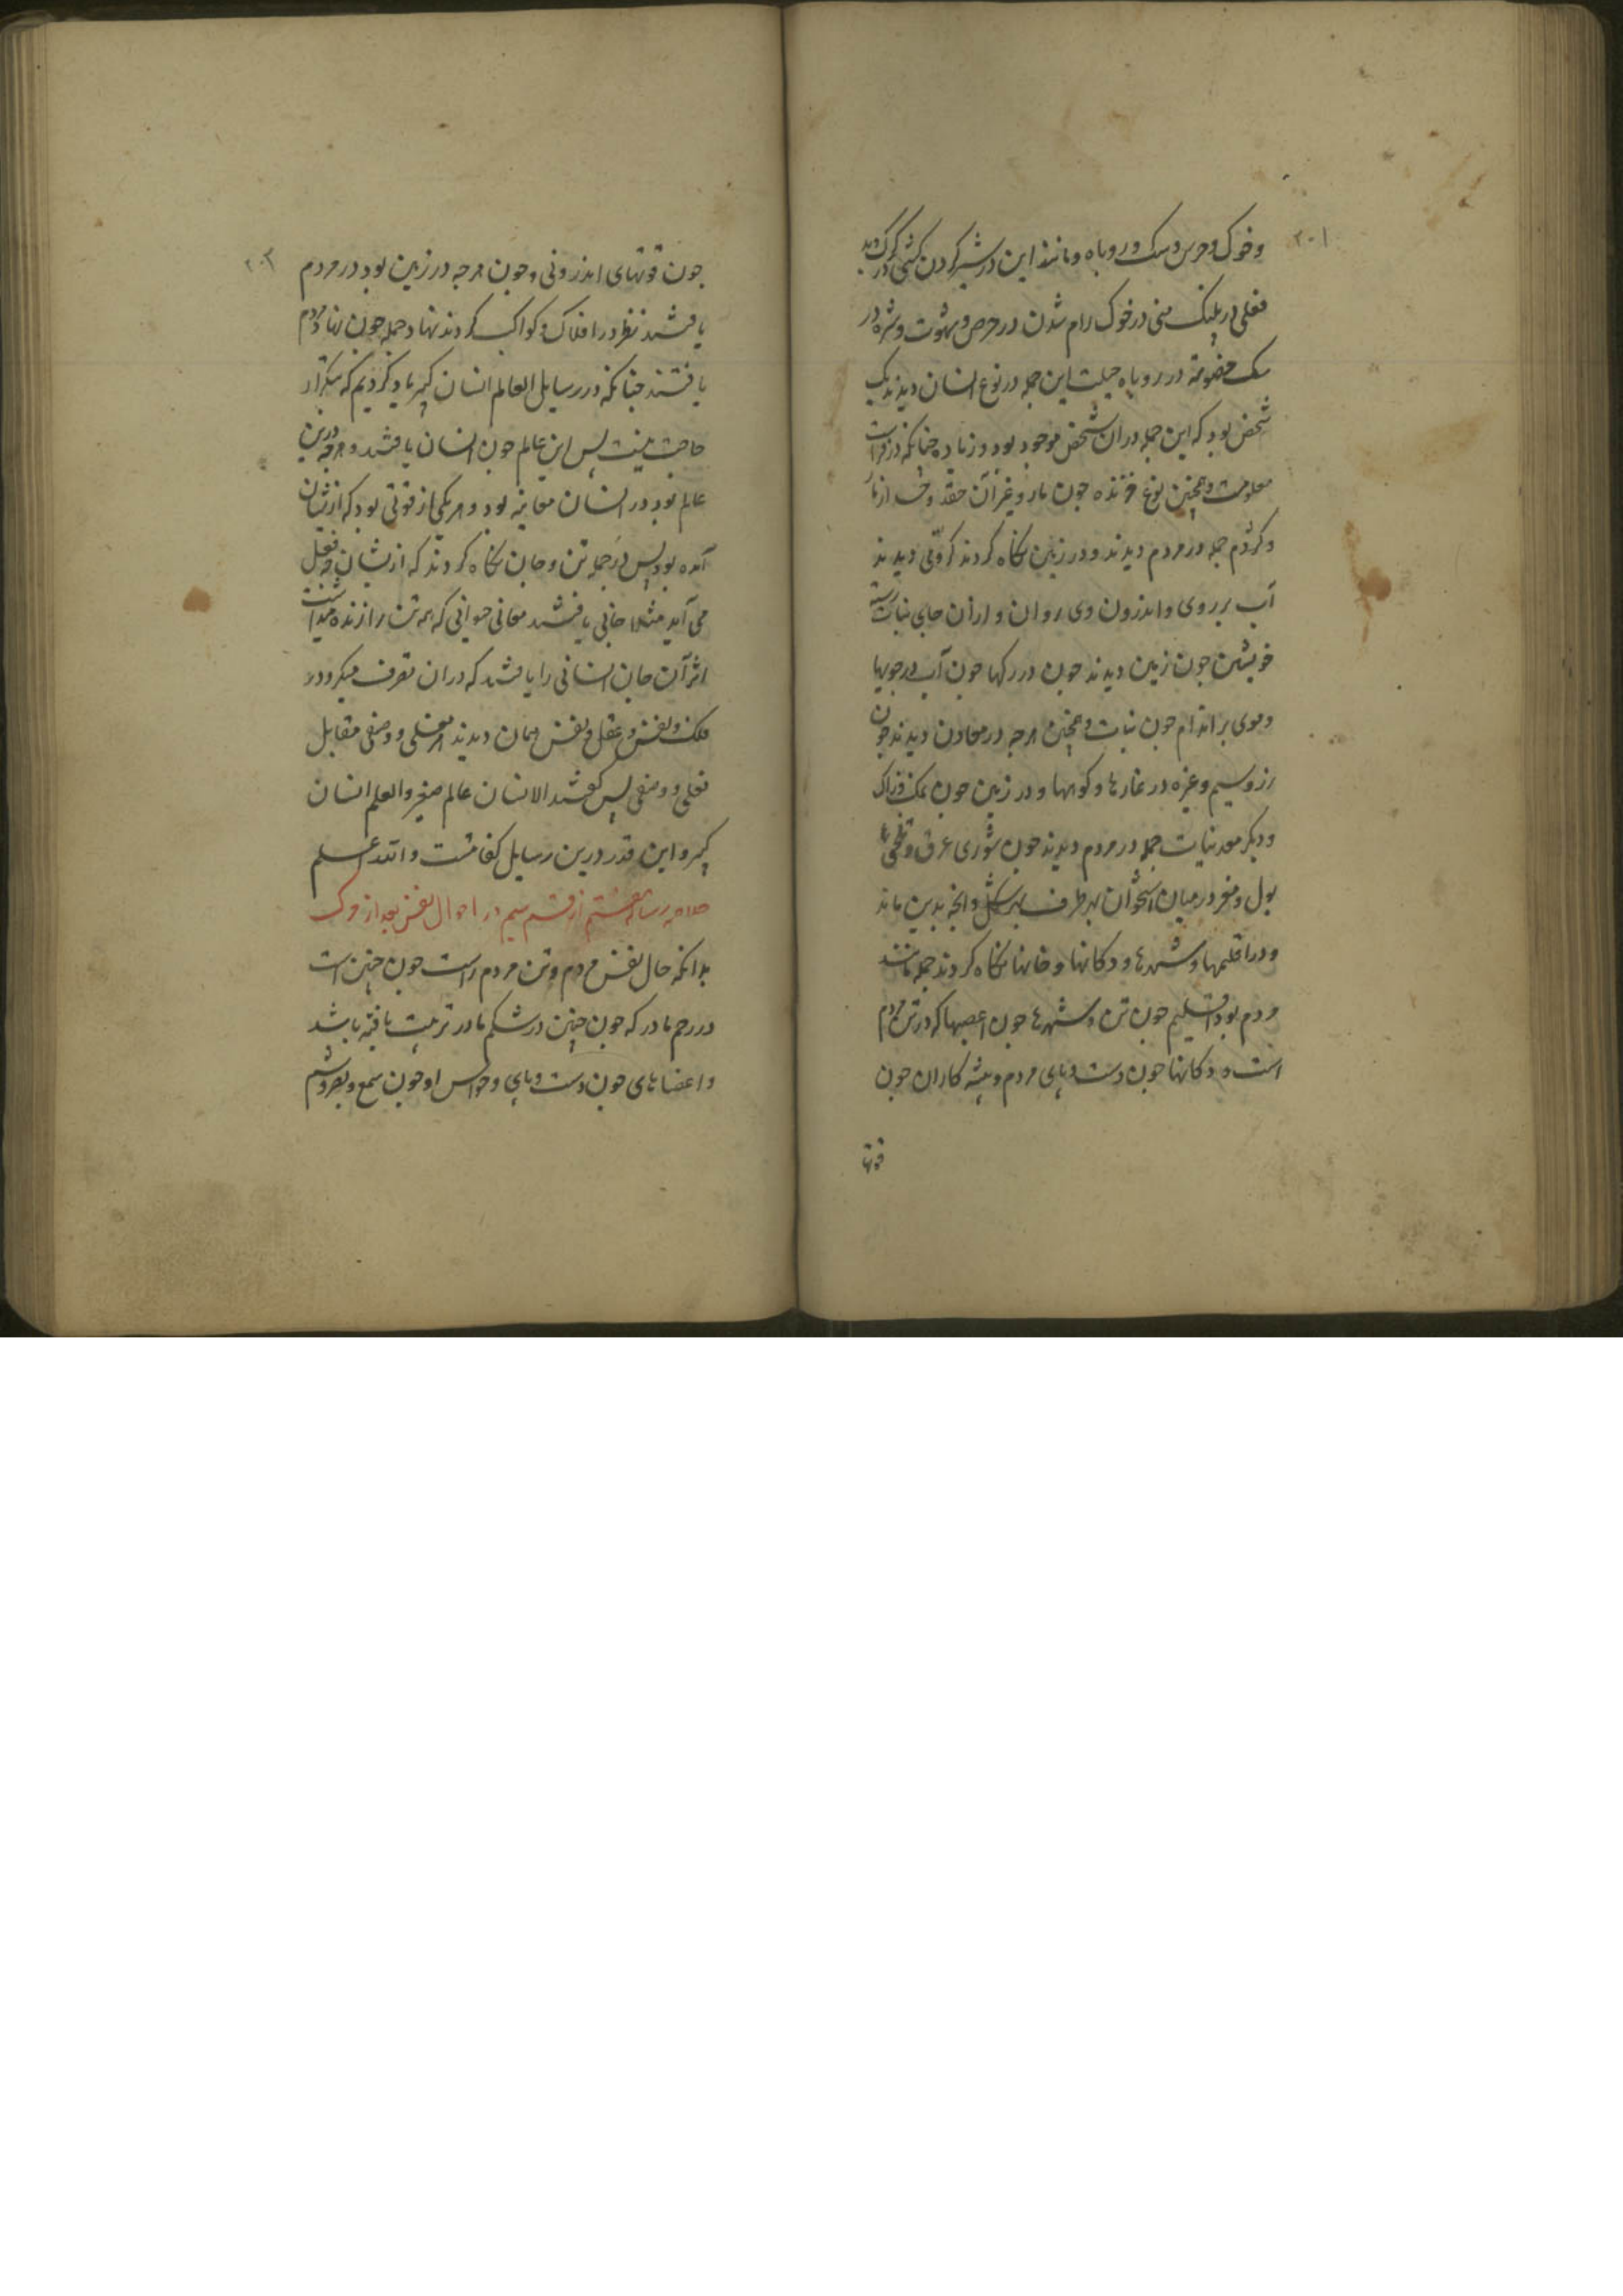 ۲۰۱
و خوک و خرس و سک و روباه و مانند این در شیر کردن کشی در کرک
فعلی در پلنک منی در خوک رام شدن در حرص و شهوت و شره در
سک خصومة در روباه حیلت این جمله در نوع انسان دیدند یک
شخص بود که این جمله در آن شخص موجود بود و زیاده چنانکه در فراست
معلومست و همچنین نوع خزنده چون مار و غیر آن حقد و از مار
و کژدم جمله در مردم دیدند و در زمین نکاه کردند کرونی دیدند
آب بر روی و اندرون وی روان و از آن جای نبات رسته
خویشتن چون زمین دیدند خون در رکها چون آب در جویها
و موی بر اندام چون نبات و همچنین هرچه در معادن دیدند چون
زر و سیم و غیره در غارها و کوهها و در زمین چون نمک و زاک
و دیکر معدنیات جمله در مردم دیدند چون شوری عرق و تلخی
بول و مغز در میان استخوان بهر طرف بهر شکل و آنچه بدین ماند
و در اقلیمها و شهرها و دکانها و خانها نکاه کردند جمله مانند
مردم بود اقلیم چون تن و شهرها چون عصبها که در تن مردم
است و دکانها چون دست و پای مردم و پیشه کاران چون
قوتها
۲۰۲
چون قوتهای اندرونی و چون هرچه در زمین بود در مردم
یافتند نظر در افلاک و کواکب کردند نهاد جمله چون نهاد مردم
یافتند چنانکه در رسایل العالم انسان کبیر یاد کردیم که بتکرار
حاجت نیست پس این عالم چون انسان یافتند و هرچه درین
عالم بود در انسان معاینه بود و هر یکی از قوتی بود که ازیشان
آمده بود پس در جمله تن و جان نکاه کردند که ازیشان چه فعل
می آید مثلا جانی یافتند معانی حیوانی که همه تن را زنده میداشت
اثر آن جان انسانی را یافتند که در آن تصرف میکرد و در
فلک و نفس و عقل و نفس همان دیدند هر فعلی و وصفی مقابل
فعلی و وصفی پس کفتند الانسان عالم صغیر والعلم انسان
کبیر و این قدر درین رسایل کفایتست والله اعلم
خلاصه رساله هشتم از قسم سیم در احوال نفس بعد از مرک
بدانکه حال نفس مردم و تن مردم راست چون جنین است
در رحم مادر که چون جنین در شکم مادر تربیت یافته باشد
و اعضاهای چون دست و پای و حواس او چون سمع و بصر و شم